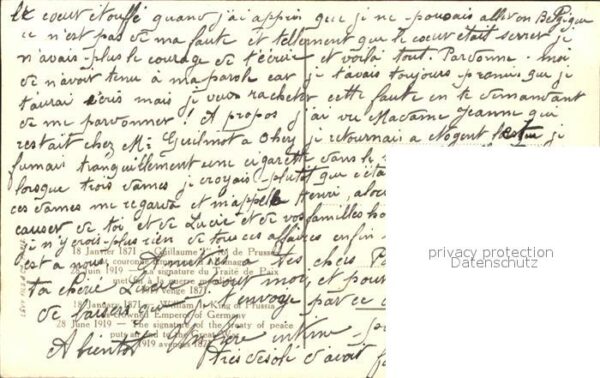 le cœur étouffé quand j'ai appris que je ne pouvais aller en Belgique
ce n'est pas de ma faute et tellement que le cœur était serrer je
n'avais plus le courage de t'écrire et voilà tout. Pardonne-moi
de n'avoir tenu à ma parole car je t'avais toujours promis que je
t'aurai écris mais je veux racheter cette faute en te demandant
de me pardonner! A propos j'ai vu Madame Jeanne qui
restait chez Mr Guilmot a Ohey je retournais a Nogent
fumais tranquillement une cigarette dans le
lorsque trois dames je croyais plutôt que c'éta
ces dames me regarde et m'appelle Henri, alors
causer de toi et de Lucie et de vos familles
je n'y crois plus rien de tous ces affaires enfin
est a nous. Amitiés a tes chers
18 Janvier 1871 — Guillaume Ier de Prusse
28 Juin 1919 — La signature du Traité de Paix
ta chère Lucie pour moi, et pour
18 January 1871 — William I King of Prussia
de baisers que je t'envoye par ce
crowned Emperor of Germany
28 June 1919 — The signature of the treaty of peace
puts an end to the Great War
1919 avenges 1871
A bientôt
intime
très désolé d'avoir
privacy protection
Datenschutz